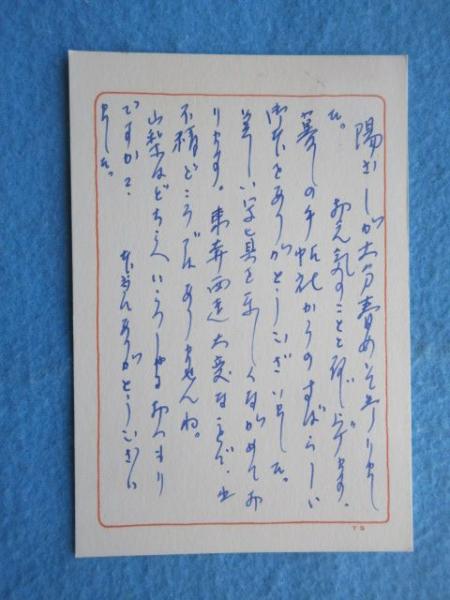 陽ざしが大分春めいて参りまし
た。
お元気のことと存じ上げます。
暮しの手帖社からのすばらしい
御本をありがとうございました。
美しい写真を楽しくながめてお
ります。東奔西走大変なことで、
不精どころではありませんね。
山梨はどちらへいらっしゃるおつもり
ですか?
本当にありがとうござい
ました。
TS